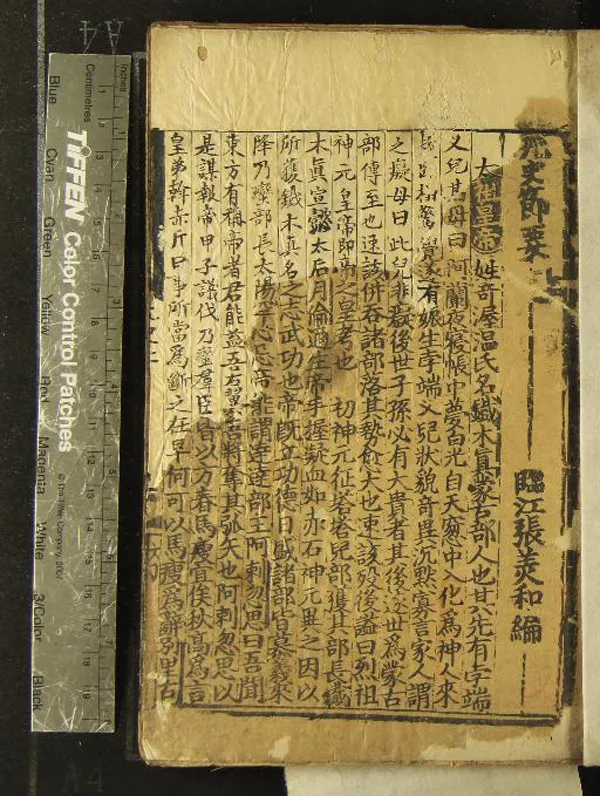 元史節要
臨江張美和編
太祖皇帝姓奇渥温氏名鐵木真蒙古部人也其先有孛端
乂兒其母曰阿蘭夜寢帳中夢白光自天窓中入化為神人來
榻驚覺遂有娠生孛端乂兒狀貌奇異沉默寡言家人謂
之癡母曰此兒非癡後世子孫必有大貴者其後遂世為蒙古
部傳至也速該併吞諸部落其勢愈大也速該歿後謚曰烈祖
神元皇帝即帝之皇考也 初神元征塔塔兒部獲其部長鐵
木真宣懿太后月倫適生帝手握凝血如赤石神元異之因以
所獲鐵木真名之志武功也帝既立功德日盛諸部皆慕義來
降乃蠻部長太陽罕心忌帝能謂達達部主阿剌忽思曰吾聞
東方有稱帝者君能益吾右翼吾將奪其弧矢也阿剌忽思以
是謀報帝甲子議伐乃蠻羣臣皆以方春馬瘦宜俟秋高為言
皇弟斡赤斤曰事所當為斷之在早何可以馬瘦為辭別里古
Inches
Centimetres
TIFFEN Color Control Patches
© The Tiffen Company, 2007
Blue
Cyan
Green
Yellow
Red
Magenta
White
3/Color
Black